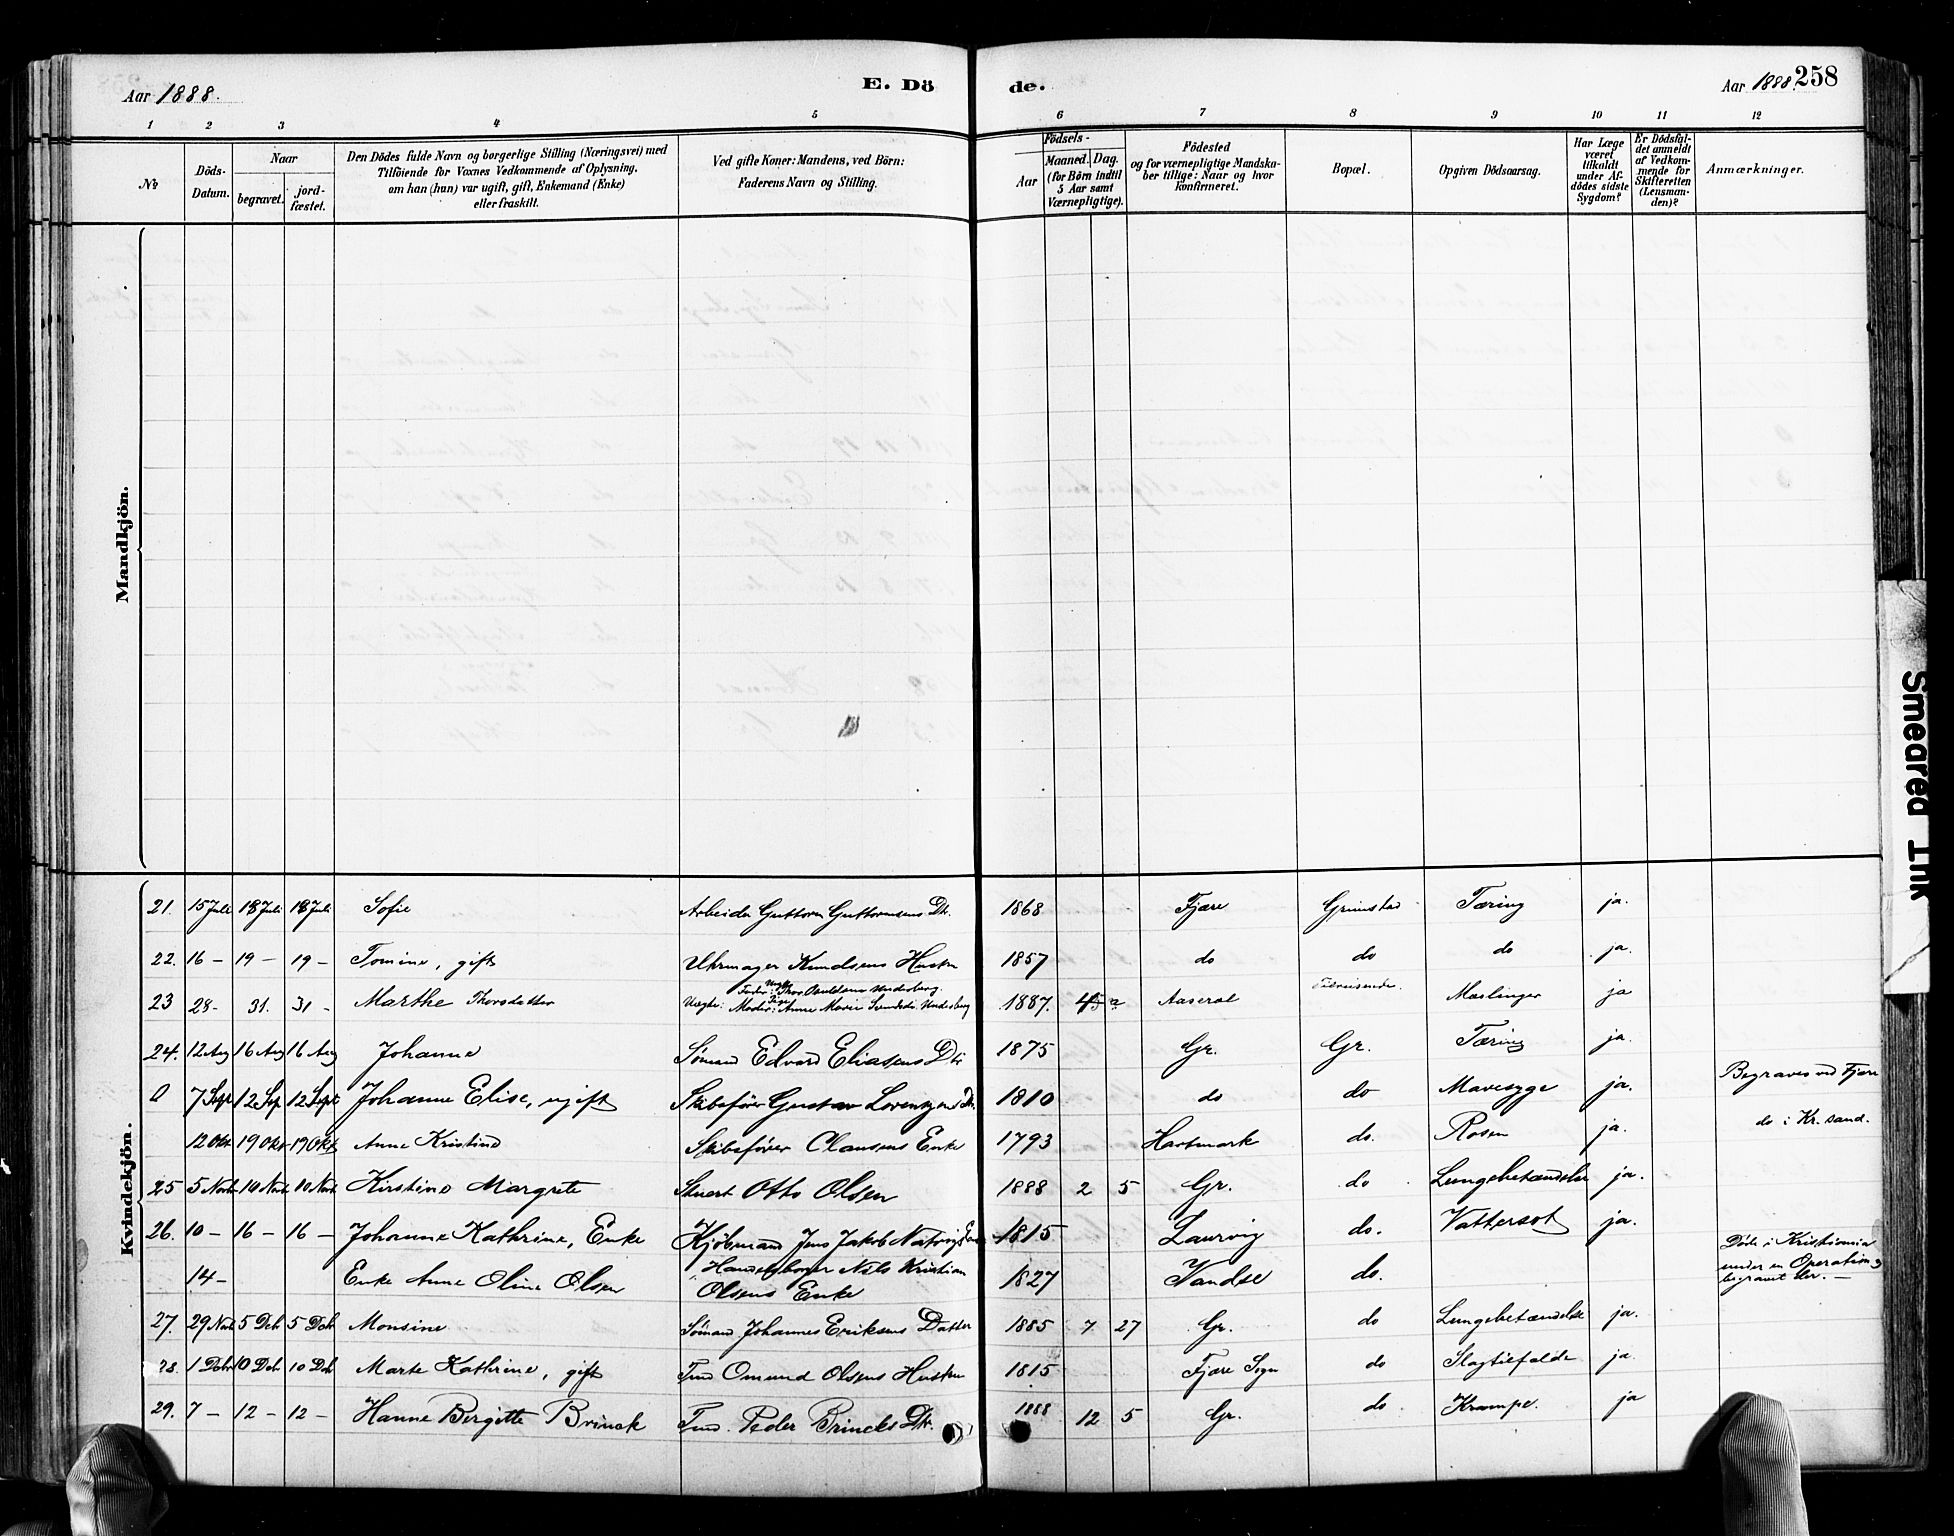 Aar 1888.
E. Dö
de.
Aar 1888.
258
1 2 3 4 5 6 7 8 9 10 11 12
№
Döds-
Datum.
Naar
begravet.
jord-
fæstet.
Den Dödes fulde Navn og borgerlige Stilling (Næringsvei) med
Tilföiende for Voxnes Vedkommende af Oplysning,
om han (hun) var ugift, gift, Enkemand (Enke)
eller fraskilt.
Ved gifte Koner: Mandens, ved Börn:
Faderens Navn og Stilling.
Födsels-
Aar
Maaned. Dag.
(for Börn indtil
5 Aar samt
Værnepligtige).
Födested
og for værnepligtige Mandska-
ber tillige: Naar og hvor
konfirmeret.
Bopæl.
Opgiven Dödsaarsag.
Har Læge
været
tilkaldt
under Af-
dödes sidste
Sygdom?
Er Dödsfal-
det anmeldt
af Vedkom-
mende for
Skifteretten
(Lensman-
den)?
Anmærkninger.
Mandkjön.
Kvindekjön.
21. 15 Juli 18 Juli 18 Juli Sofie Arbeider Guttorm Guttormsens Dtr. 1868 Fjære Grimstad Tæring ja.
22. 16 – 19 – 19 – Tomine, gift Uhrmager Knudsens Hustru 1857 do do do ja.
23 28 – 31. 31 – Marthe Thorsdatter Uægte: Moder: Anne Marie 1887. Aaseral Mæslinger ja
24. 12 Aug 16 Aug 16 Aug Johanne Sømand Edvard Eliasens Dtr 1875 Gr. Gr. Tæring ja.
0 7 Sept 12 Sep. 12 Sept Johanne Elise, ugift Skibsfører Gustav Lorentzens Dtr. 1810 do do Mavesyge ja. Begraves ved Fjære
12 Okt 19 Okt 19 Okt Anne Kristine Skibsfører Clausens Enke 1793 Hartmark do. Rosen ja. do i Kr.sand.
25 5 Novb 10 Novb 10 Novb Kirstine Margrete Stuert Otto Olsen 1888 2 5 Gr. do Lungebetændelse ja.
26. 10 – 16 – 16 – Johanne Kathrine, Enke Kjøbmand Jens Jakob Natvigs Enke 1815 Laurvig do. Vattersot ja.
14 – Enke Anne Oline Olsen Handelsborger Nils Kristian
Olsens Enke 1827 Vandse do. Døde i Kristiania
under en Operation og
begravet der. –
27. 29 Novb 5 Deb 5 Deb Monsine Sømand Johannes Eriksens Datter 1885 7 27 Gr. do Lungebetændelse ja.
28. 1 Debr 10 Deb 10 Deb Marte Kathrine, gift Tmd Omund Olsens Hustru 1815 Fjære Sogn do Slagtilfælde ja.
29. 7 – 12 – 12 – Hanne Bergitte Brinck Tmd. Peder Brincks Dtr. 1888 12 5 Gr. do. Krampe. ja
Smeared Ink